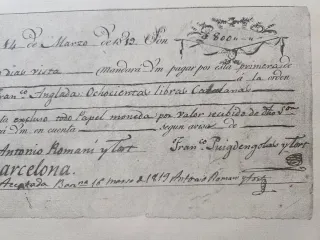 14 de Marzo de 1819 Son 800
dias vista (Mandará Vm pagar por esta primera de
á la orden
Fran.co Anglada: Ochocientas libras Catalanas
excluso todo Papel moneda por valor recibido de dho Sor
Vm en cuenta segun aviso de
Antonio Romaní y Tort Franco Puigdengolas y Tort
Barcelona.
Aceptada Barna 16 marzo de 1819 Antonio Romaní y Tort